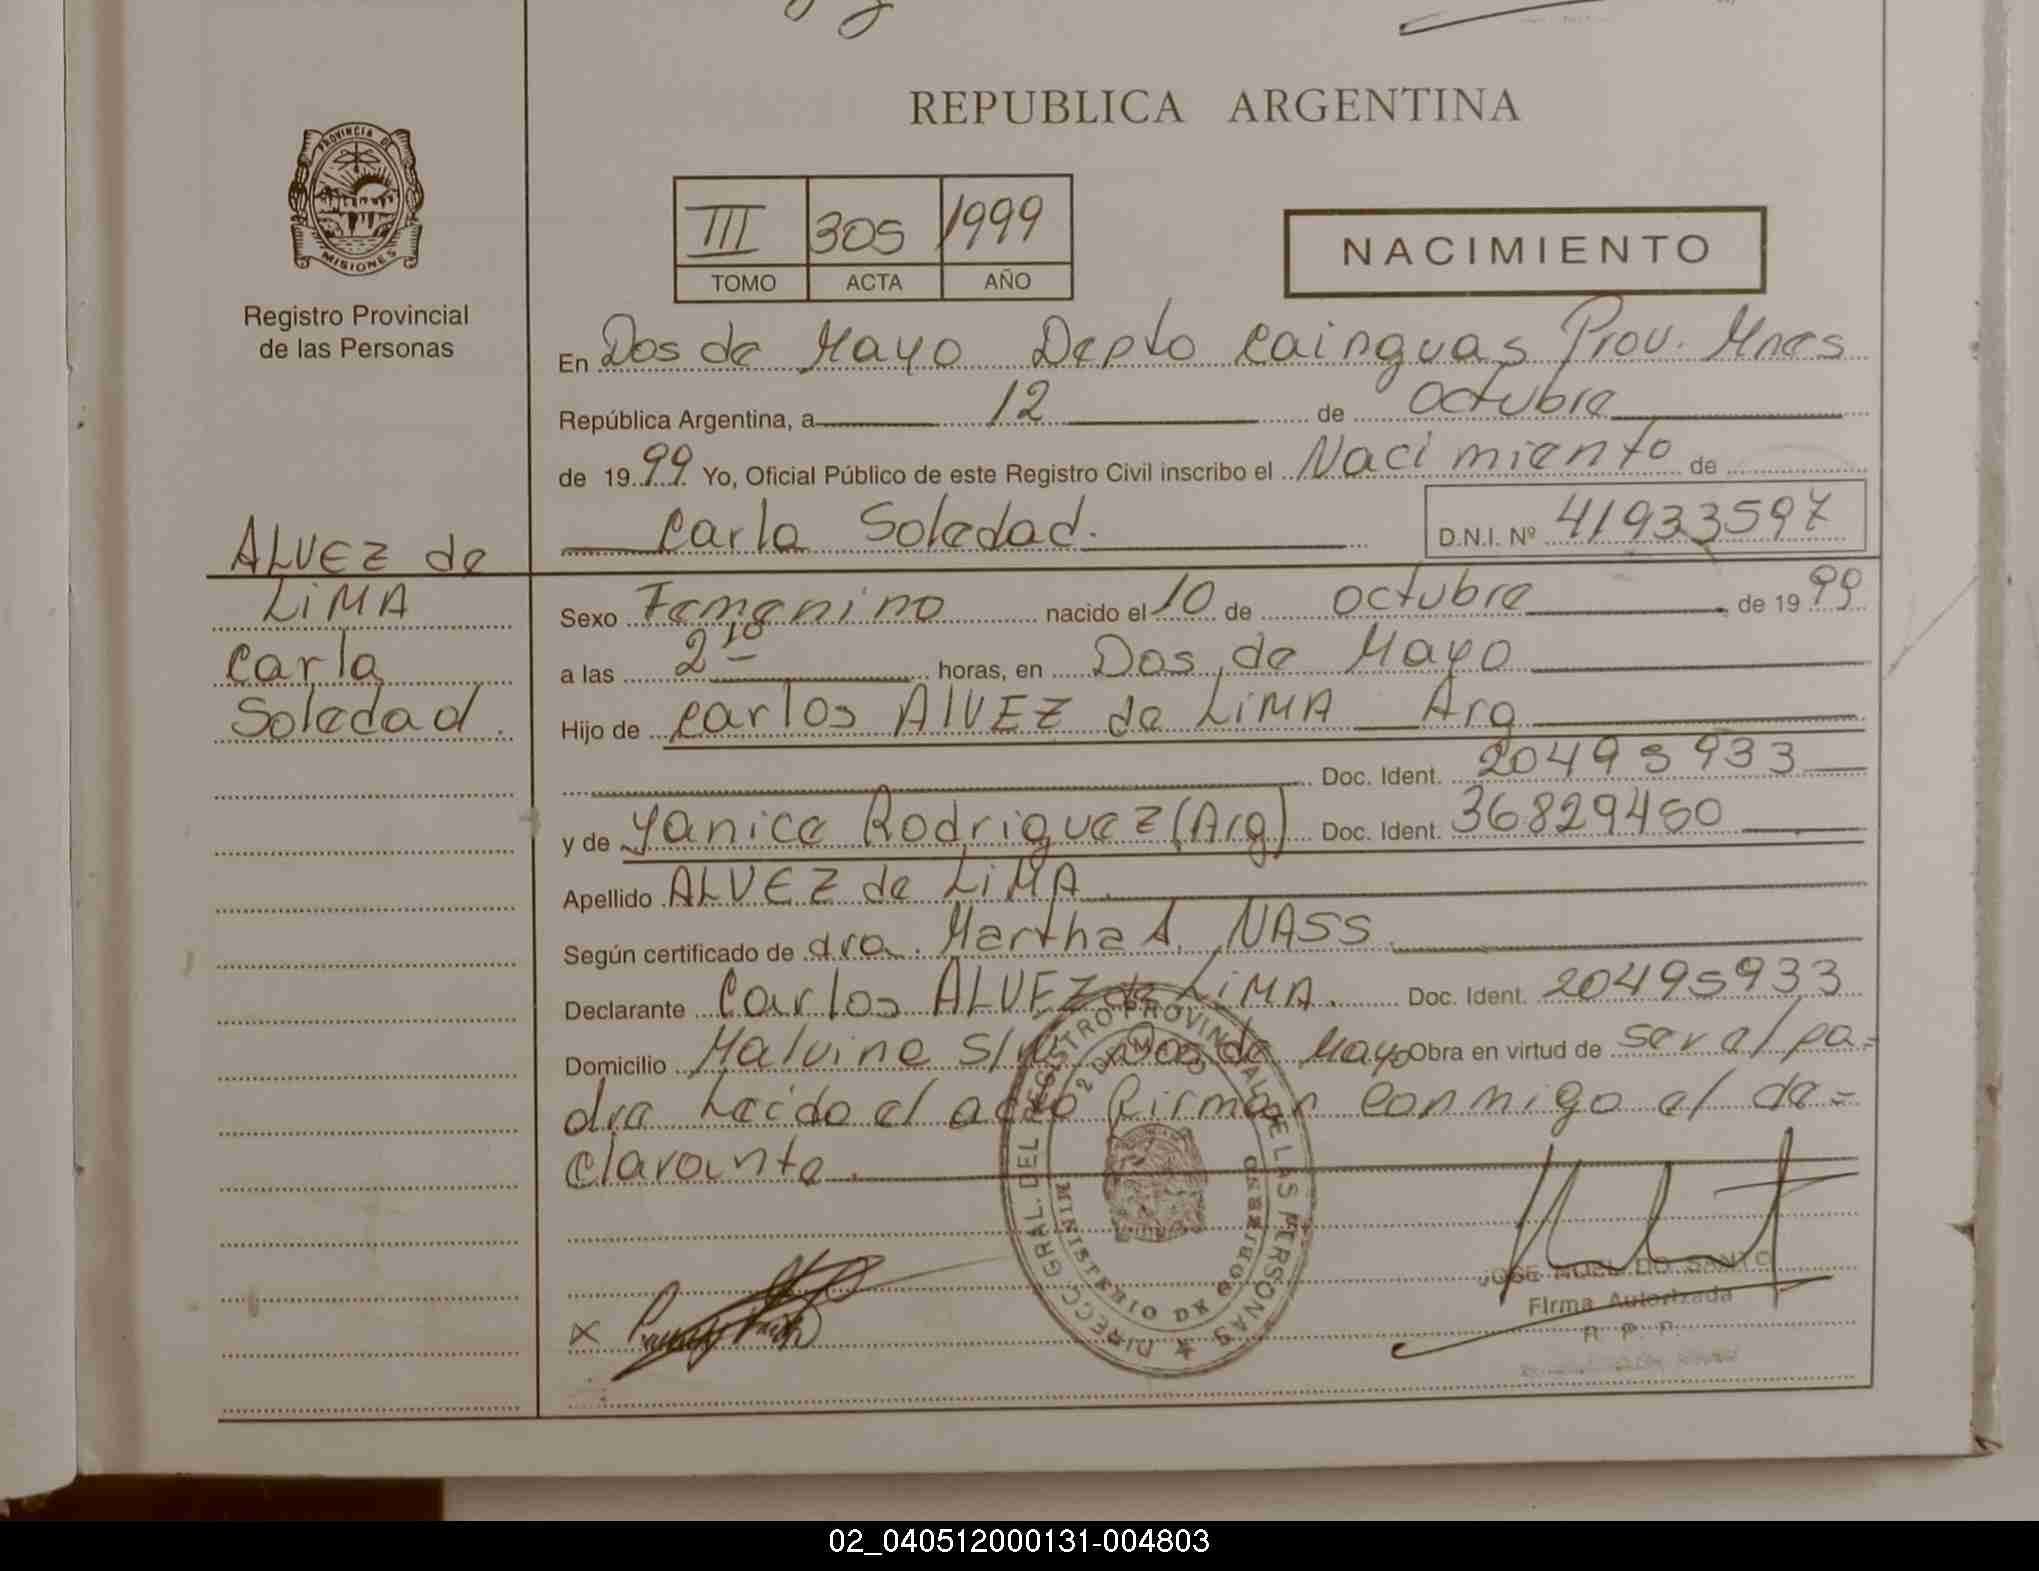 REPUBLICA ARGENTINA
PROVINCIA DE
MISIONES
Registro Provincial
de las Personas
III 305 1999
TOMO ACTA AÑO
NACIMIENTO
En Dos de Mayo Depto Cainguas Prov. Mnes
República Argentina, a 12 de octubre
de 1999 Yo, Oficial Público de este Registro Civil inscribo el Nacimiento de
Carla Soledad. D.N.I. Nº 41933597
ALVEZ de
LiMA
Carla
Soledad.
Sexo Femenino nacido el 10 de octubre de 1999
a las 2 10 horas, en Dos de Mayo
Hijo de Carlos AlVEZ de LiMA Arg
Doc. Ident. 20495933
y de Yanice Rodriguez (Arg) Doc. Ident. 36829450
Apellido ALVEZ de LiMA.
Según certificado de dra. Martha A. NASS.
Declarante Carlos ALVEZ de LiMA. Doc. Ident. 20495933
Domicilio Malvina S/N Dos de Mayo Obra en virtud de ser el pa=
dre Leido el acta firman conmigo el de=
clarante.
DIRECC. GRAL. DEL REGISTRO PROVINCIAL DE LAS PERSONAS
2 DE MAYO
MINISTERIO DE GOBIERNO
JOSE DO SANTO
Firma Autorizada
02_040512000131-004803